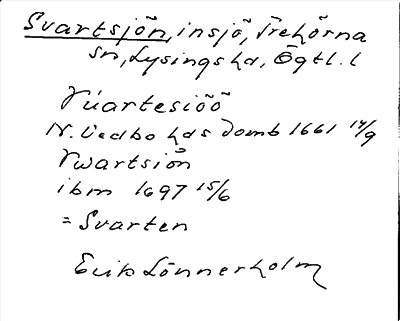 Svartsjön, insjö, Trehörna
sn, Lysings hd, Ögtl. l
Vúartesiöö
N. Vedbo hds domb 1661 14/9
Vwartsiön
ibm 1697 15/6
= Svarten
Erik Lönnerholm